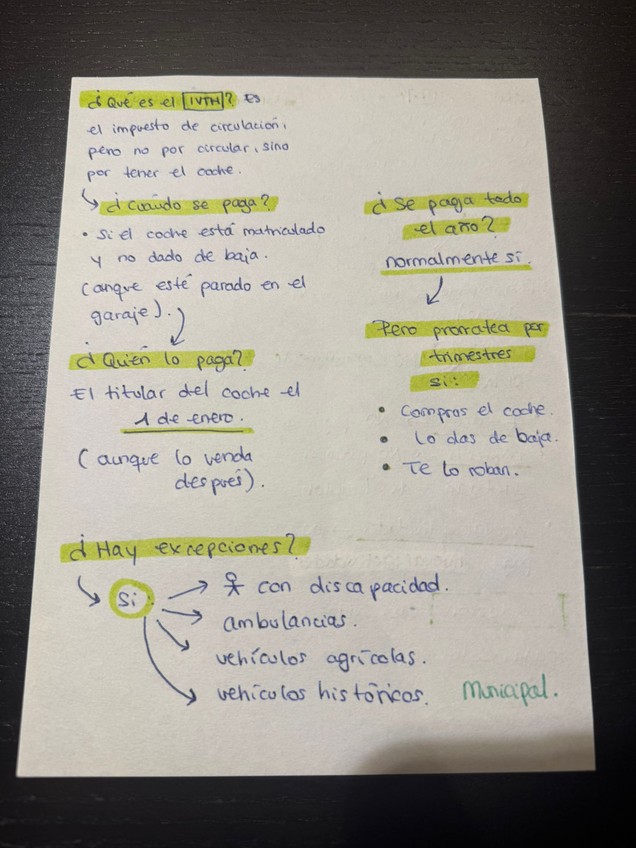 ¿Qué es el IVTM? Es
el impuesto de circulación,
pero no por circular, sino
por tener el coche.
¿Cuándo se paga?
• Si el coche está matriculado
y no dado de baja.
(anque esté parado en el
garaje).
¿Quién lo paga?
El titular del coche el
1 de enero.
(aunque lo venda
después).
¿Se paga todo
el año?
normalmente sí.
Pero prorratea por
trimestres
si:
• Compras el coche.
• lo das de baja.
• Te lo roban.
¿Hay excepciones?
Si
con discapacidad.
ambulancias.
vehículos agrícolas.
vehículos históricos.
Municipal.